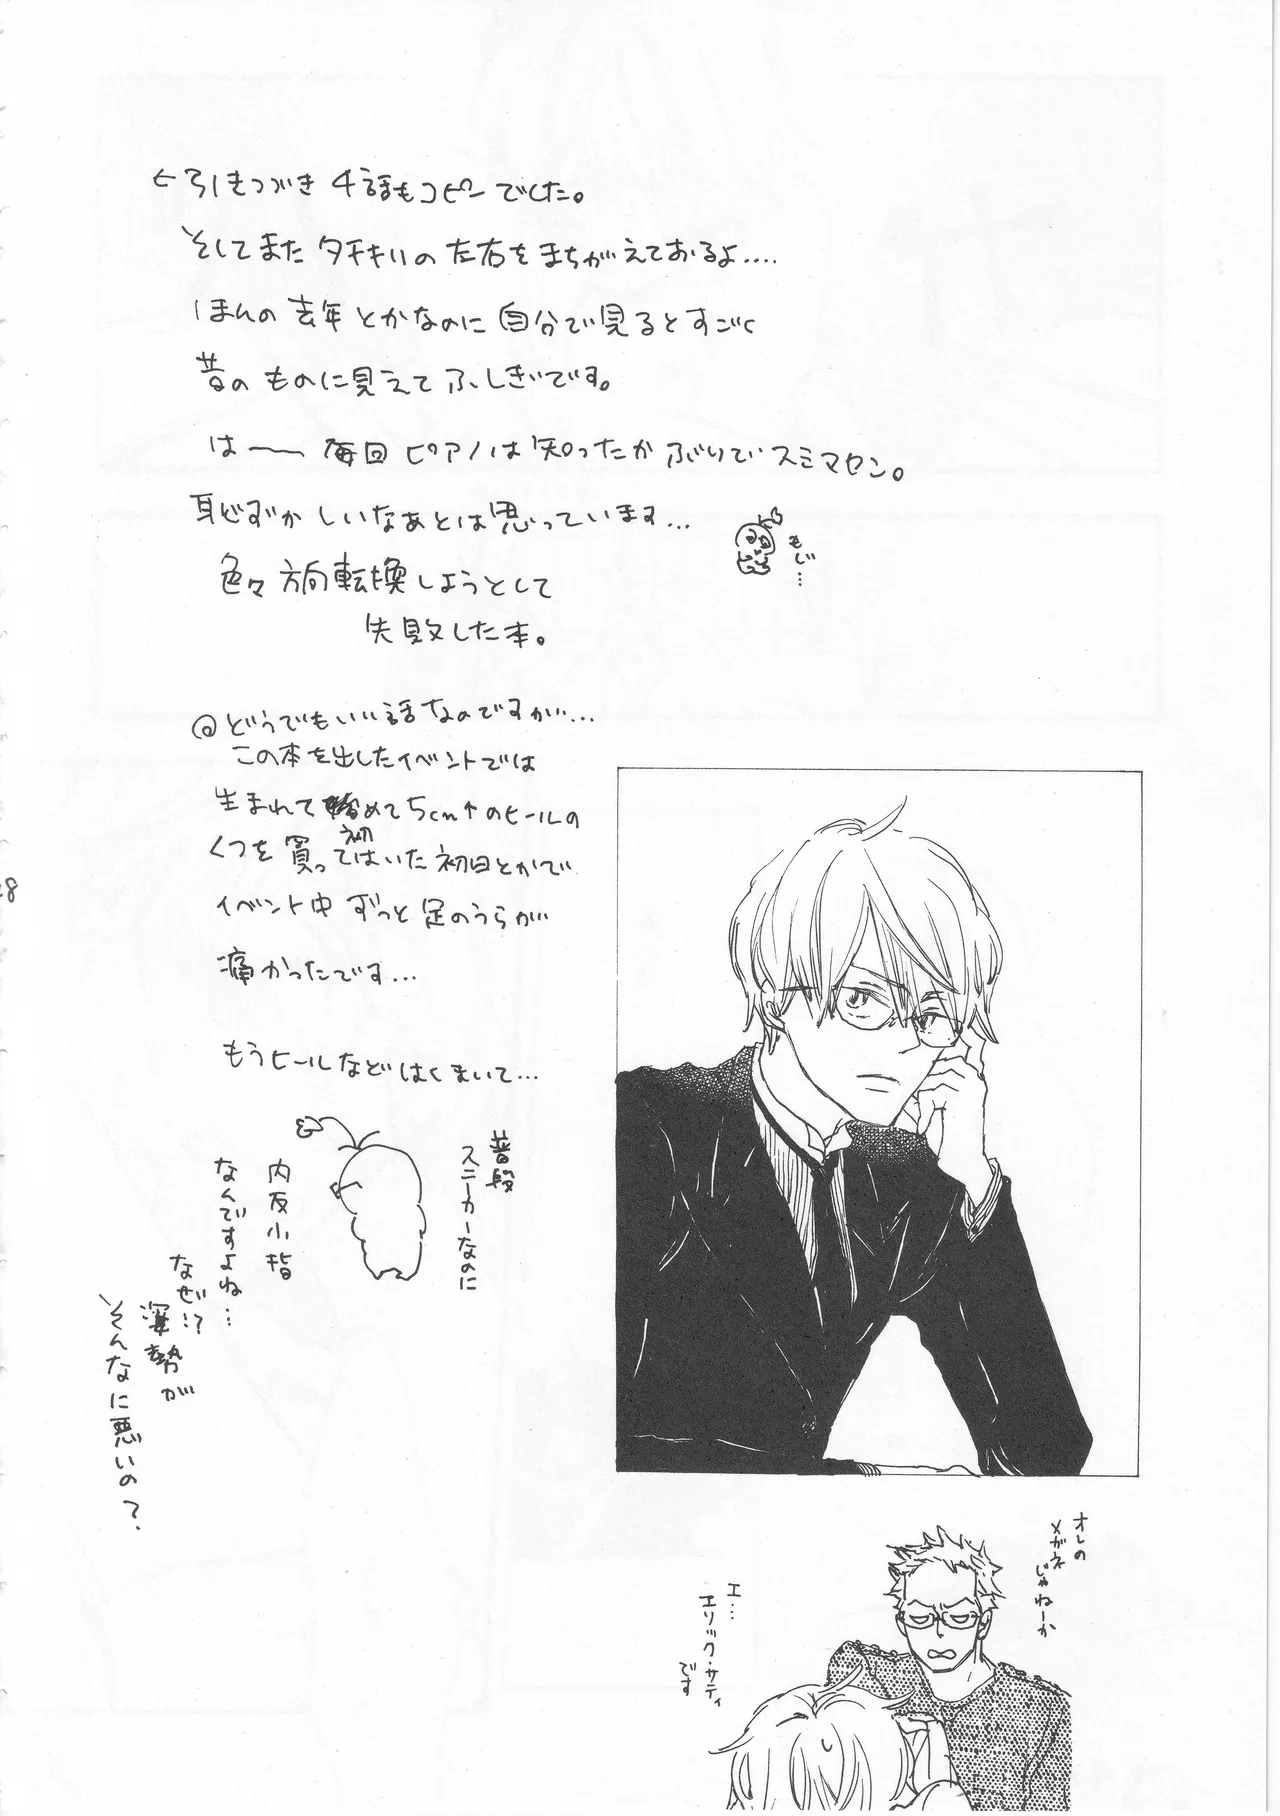 ←引きつづき4話もコピーでした。
そしてまたタチキリの左右をまちがえておるよ....
ほんの去年とかなのに自分で見るとすごく
昔のものに見えてふしぎです。
は〜〜毎回ピアノは知ったかぶりでスミマセン。
恥ずかしいなあとは思っています...
もじ...
色々方向転換しようとして
失敗した本。
@どうでもいい話なのですが...
この本を出したイベントでは
生まれて初めて5cm↑のヒールの
くつを買ってはいた初日とかで
イベント中ずっと足のうらが
痛かったです...
もうヒールなどはくまいて...
普段
スニーカーなのに
内反小指
なんですよね...
なぜ!?
姿勢が
そんなに悪いの?
28
オレの
メガネ
じゃねーか
エ...
エリック・サティ
です